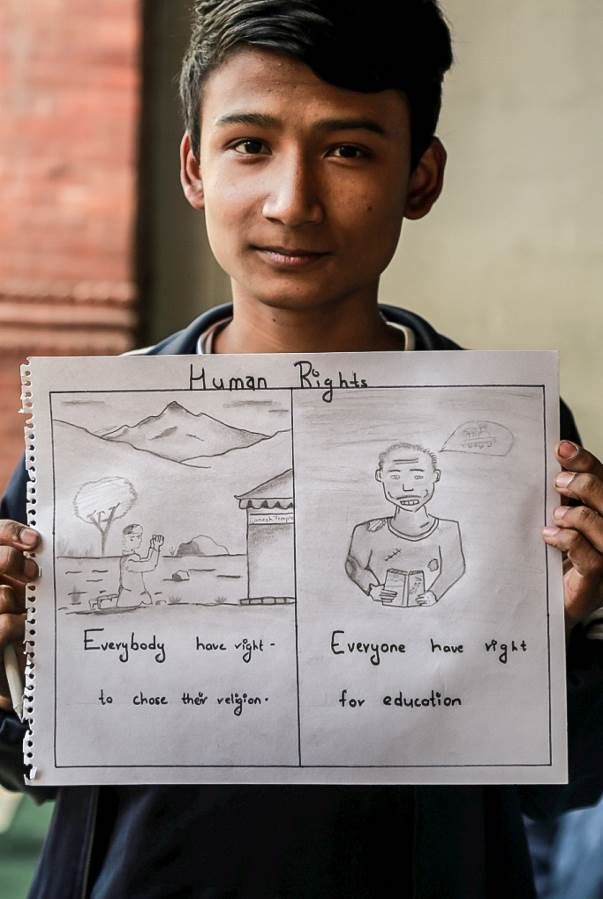 Human Rights
Ganesh Temple
Everybody have right -
to chose their religion.
Everyone have right
for education